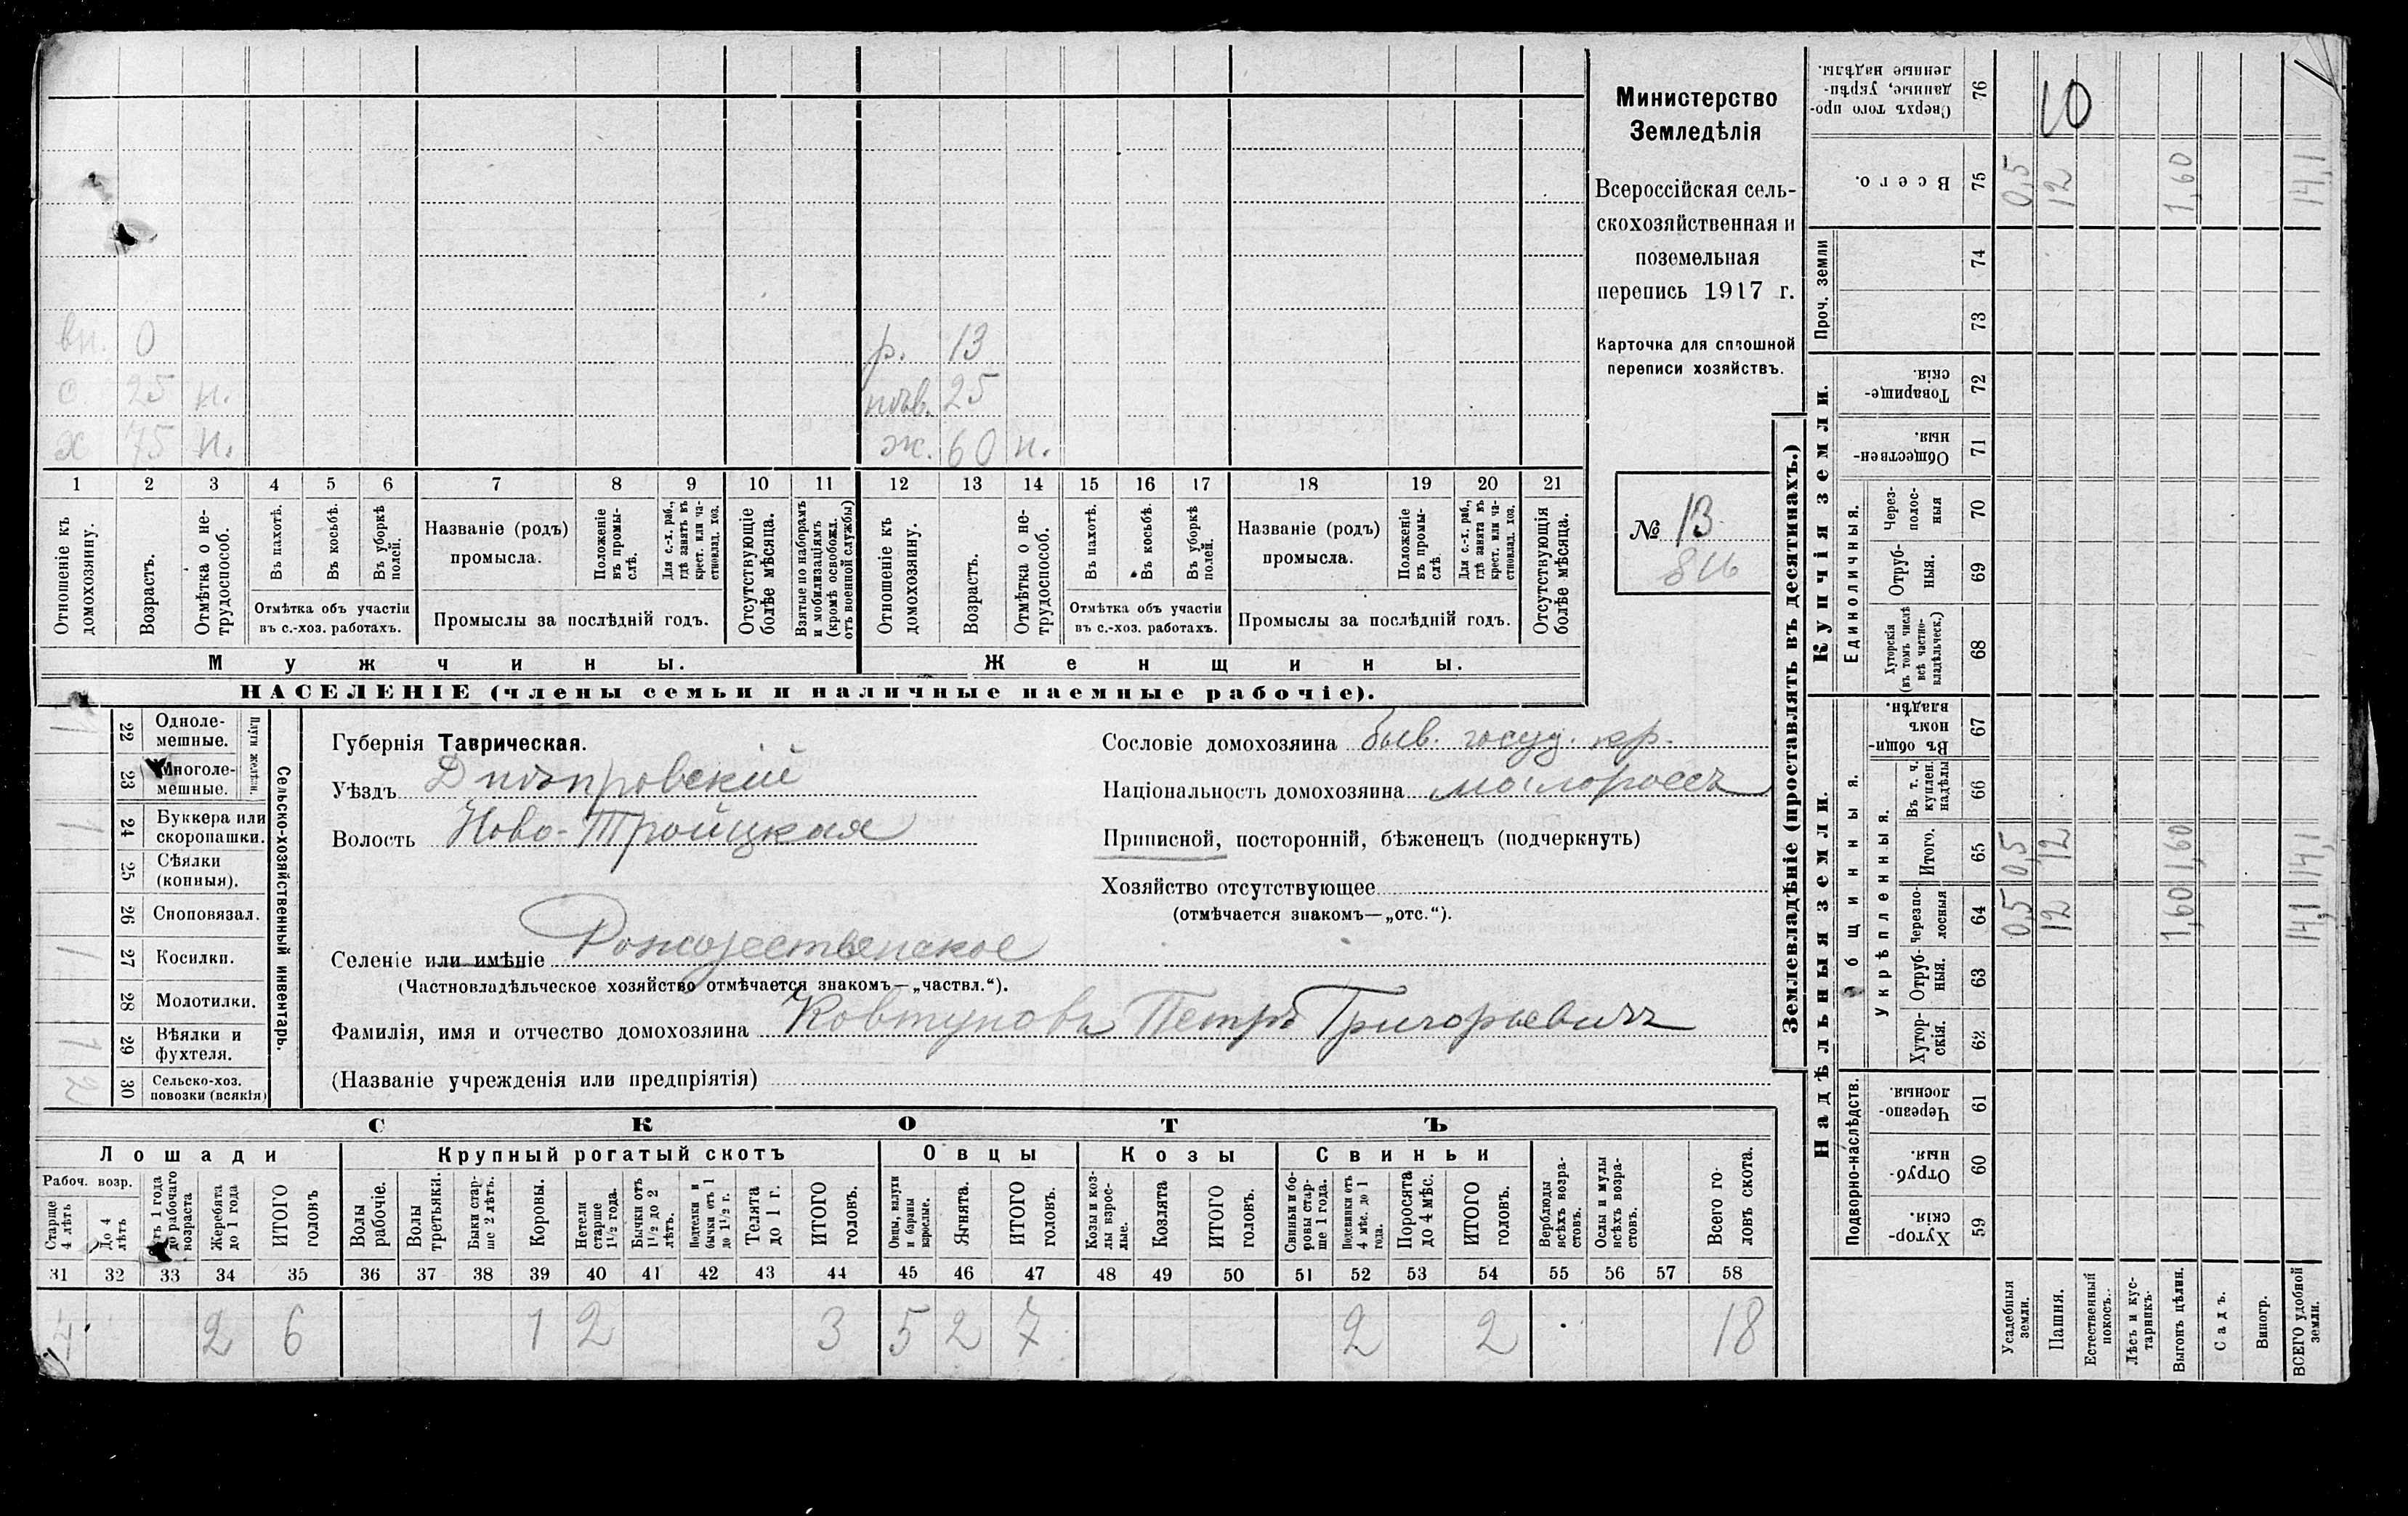 Министерство
Земледѣлія
Всероссійская сель-
скохозяйственная и
поземельная
перепись 1917 г.
Карточка для сплошной
переписи хозяйствъ.
№ 13
816
вн. 0
р. 13
с. 25 н.
невѣ. 25
х 75 н.
ж. 60 н.
1 2 3 4 5 6 7 8 9 10 11 12 13 14 15 16 17 18 19 20 21
Отношеніе къ домохозяину.
Возрастъ.
Отмѣтка о не-трудоспособ.
Въ пахотѣ.
Въ косьбѣ.
Въ уборкѣ полей.
Отмѣтка объ участіи
въ с.-хоз. работахъ.
Названіе (родъ)
промысла.
Положеніе въ промы-слѣ.
Для с.-х. раб., гдѣ занятъ въ крест. или ча-стновлад. хоз.
Промыслы за послѣдній годъ.
Отсутствующіе болѣе мѣсяца.
Взятые по наборамъ и мобилизаціямъ (кромѣ освобожд. отъ военной службы)
Отношеніе къ домохозяину.
Возрастъ.
Отмѣтка о не-трудоспособ.
Въ пахотѣ.
Въ косьбѣ.
Въ уборкѣ полей.
Отмѣтка объ участіи
въ с.-хоз. работахъ.
Названіе (родъ)
промысла.
Положеніе въ промы-слѣ
Для с.-х. раб., гдѣ занята въ крест. или ча-стновлад. хоз.
Промыслы за послѣдній годъ.
Отсутствующія болѣе мѣсяца.
Мужчины.
Женщины.
НАСЕЛЕНІЕ (члены семьи и наличные наемные рабочіе).
Сельско-хозяйственный инвентарь.
Плуги желѣзн.
1 22 Одноле-мешные.
23 Многоле-мешные.
1 24 Буккера или скоропашки.
25 Сѣялки (конныя).
26 Сноповязал.
1 27 Косилки.
28 Молотилки.
1 29 Вѣялки и фухтеля.
2 30 Сельско-хоз. повозки (всякія)
Губернія Таврическая.
Уѣздъ Днѣпровскій
Волость Ново-Троицкая
Селеніе или имѣніе Рождественское
(Частновладѣльческое хозяйство отмѣчается знакомъ—„частвл.“).
Фамилія, имя и отчество домохозяина Ковтуновъ Петръ Григорьевичъ
(Названіе учрежденія или предпріятія)
Сословіе домохозяина быв. госуд. кр.
Національность домохозяина малороссъ
Приписной, посторонній, бѣженецъ (подчеркнуть)
Хозяйство отсутствующее
(отмѣчается знакомъ—„отс.“).
СКОТЪ
Лошади
Крупный рогатый скотъ
Овцы
Козы
Свиньи
Рабоч. возр.
Старше 4 лѣтъ
До 4 лѣтъ
Отъ 1 года до рабочаго возраста
Жеребята до 1 года
ИТОГО головъ
Волы рабочіе.
Волы третьяки.
Быки стар-ше 2 лѣтъ.
Коровы.
Нетели старше 1½ года.
Бычки отъ 1½ до 2 лѣтъ.
Подтелки и бычки отъ 1 до 1½ г.
Телята до 1 г.
ИТОГО головъ.
Овцы, валухи и бараны взрослые.
Ягнята.
ИТОГО головъ.
Козы и коз-лы взрос-лые.
Козлята
ИТОГО головъ.
Свиньи и бо-ровы стар-ше 1 года.
Подсвинки отъ 4 мѣс. до 1 года.
Поросята до 4 мѣс.
ИТОГО головъ.
Верблюды всѣхъ возра-стовъ.
Ослы и мулы всѣхъ возра-стовъ.
Всего го-ловъ скота.
31 32 33 34 35 36 37 38 39 40 41 42 43 44 45 46 47 48 49 50 51 52 53 54 55 56 57 58
4 2 6 1 2 3 5 2 7 2 2 18
Землевладѣніе (проставлять въ десятинахъ.)
Надѣльныя земли.
Купчія земли.
Проч. земли
Подворно-наслѣдств.
Общинныя.
Укрѣпленныя.
Единоличныя.
76 Сверхъ того про-данные, укрѣп-ленные надѣлы. 10
75 Всего. 0,5 12 1,60 14,1
74
73
72 Товарище-скія.
71 Обществен-ныя.
70 Через-полос-ныя
69 Отруб-ныя.
68 Хуторскія (въ томъ числѣ всѣ частно-владѣльческ.)
67 Въ общин-номъ владѣн.
66 Въ т. ч. куплен. надѣлы
65 Итого. 0,5 12 1,60 14,1
64 Черезпо-лосныя 0,5 12 1,60 14,1
63 Отруб-ныя.
62 Хутор-скія.
61 Черезпо-лосныя
60 Отруб-ныя.
59 Хутор-скія.
Усадебныя земли.
Пашня.
Естественный покосъ.
Лѣсъ и кус-тарникъ.
Выгонъ цѣлин.
Садъ.
Виногр.
ВСЕГО удобной земли.